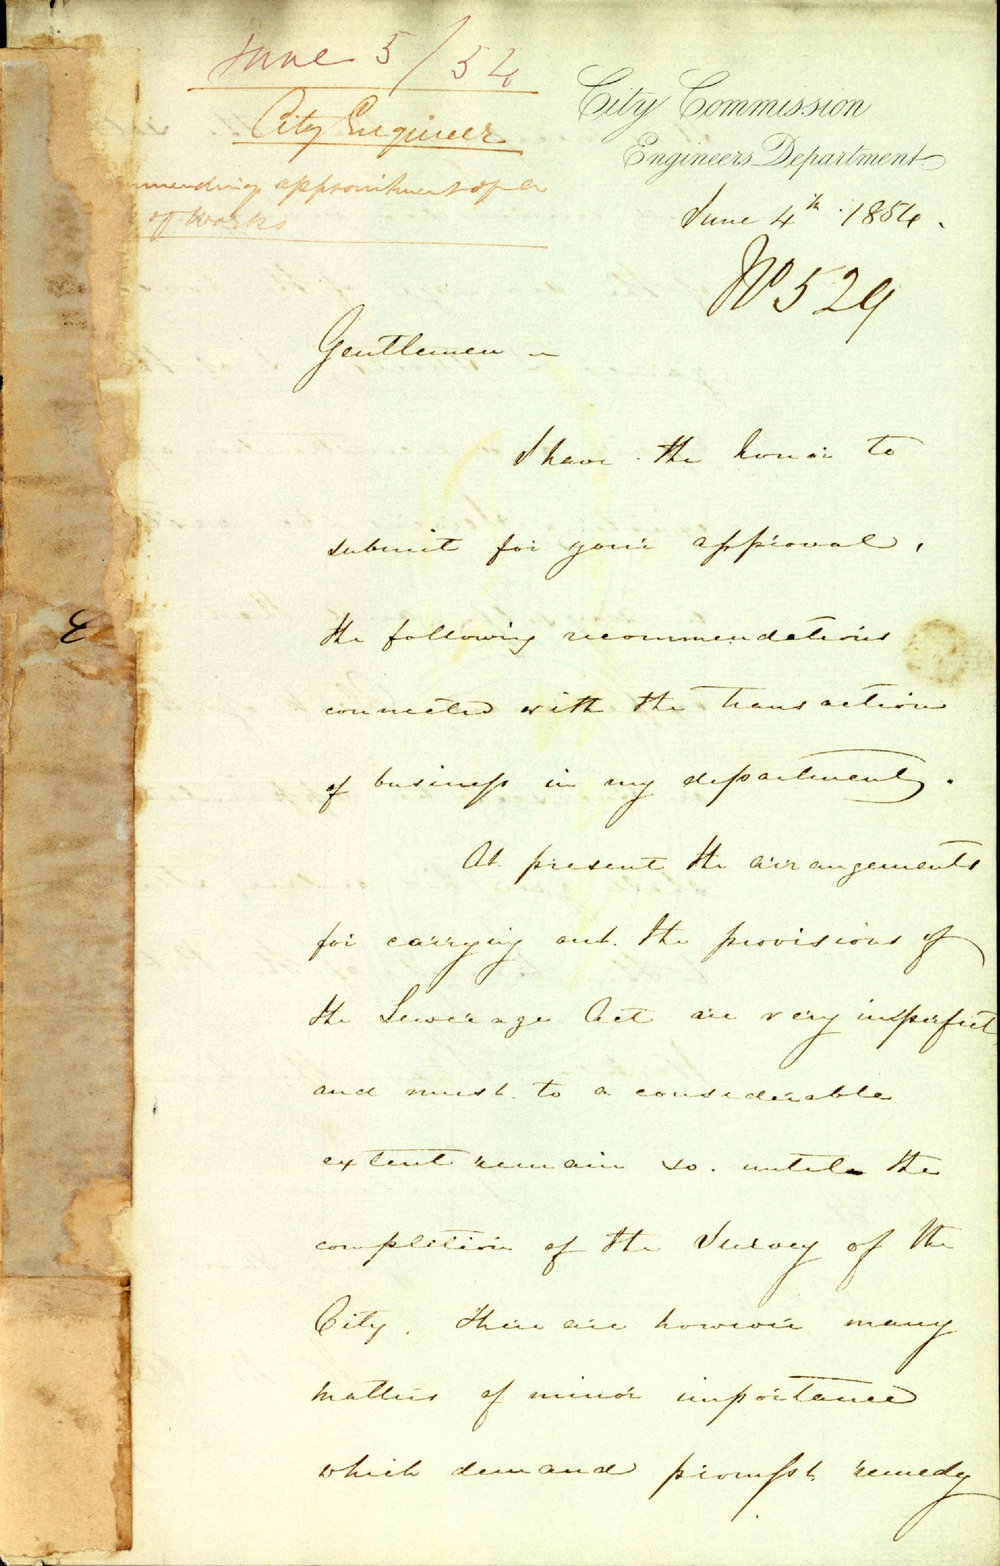 June 5/54
City Engineer
appointment of a
of Works
City Commission
Engineers Department
June 4th 1854.
No 529
Gentlemen
I have the honor to
submit for your approval,
the following recommendations
connected with the transaction
of business in my department.
At present the arrangements
for carrying out the provisions of
the Sewerage Act are very imperfect
and must to a considerable
extent remain so until the
completion of the Survey of the
City. There are however many
matters of minor importance
which demand prompt remedy
E